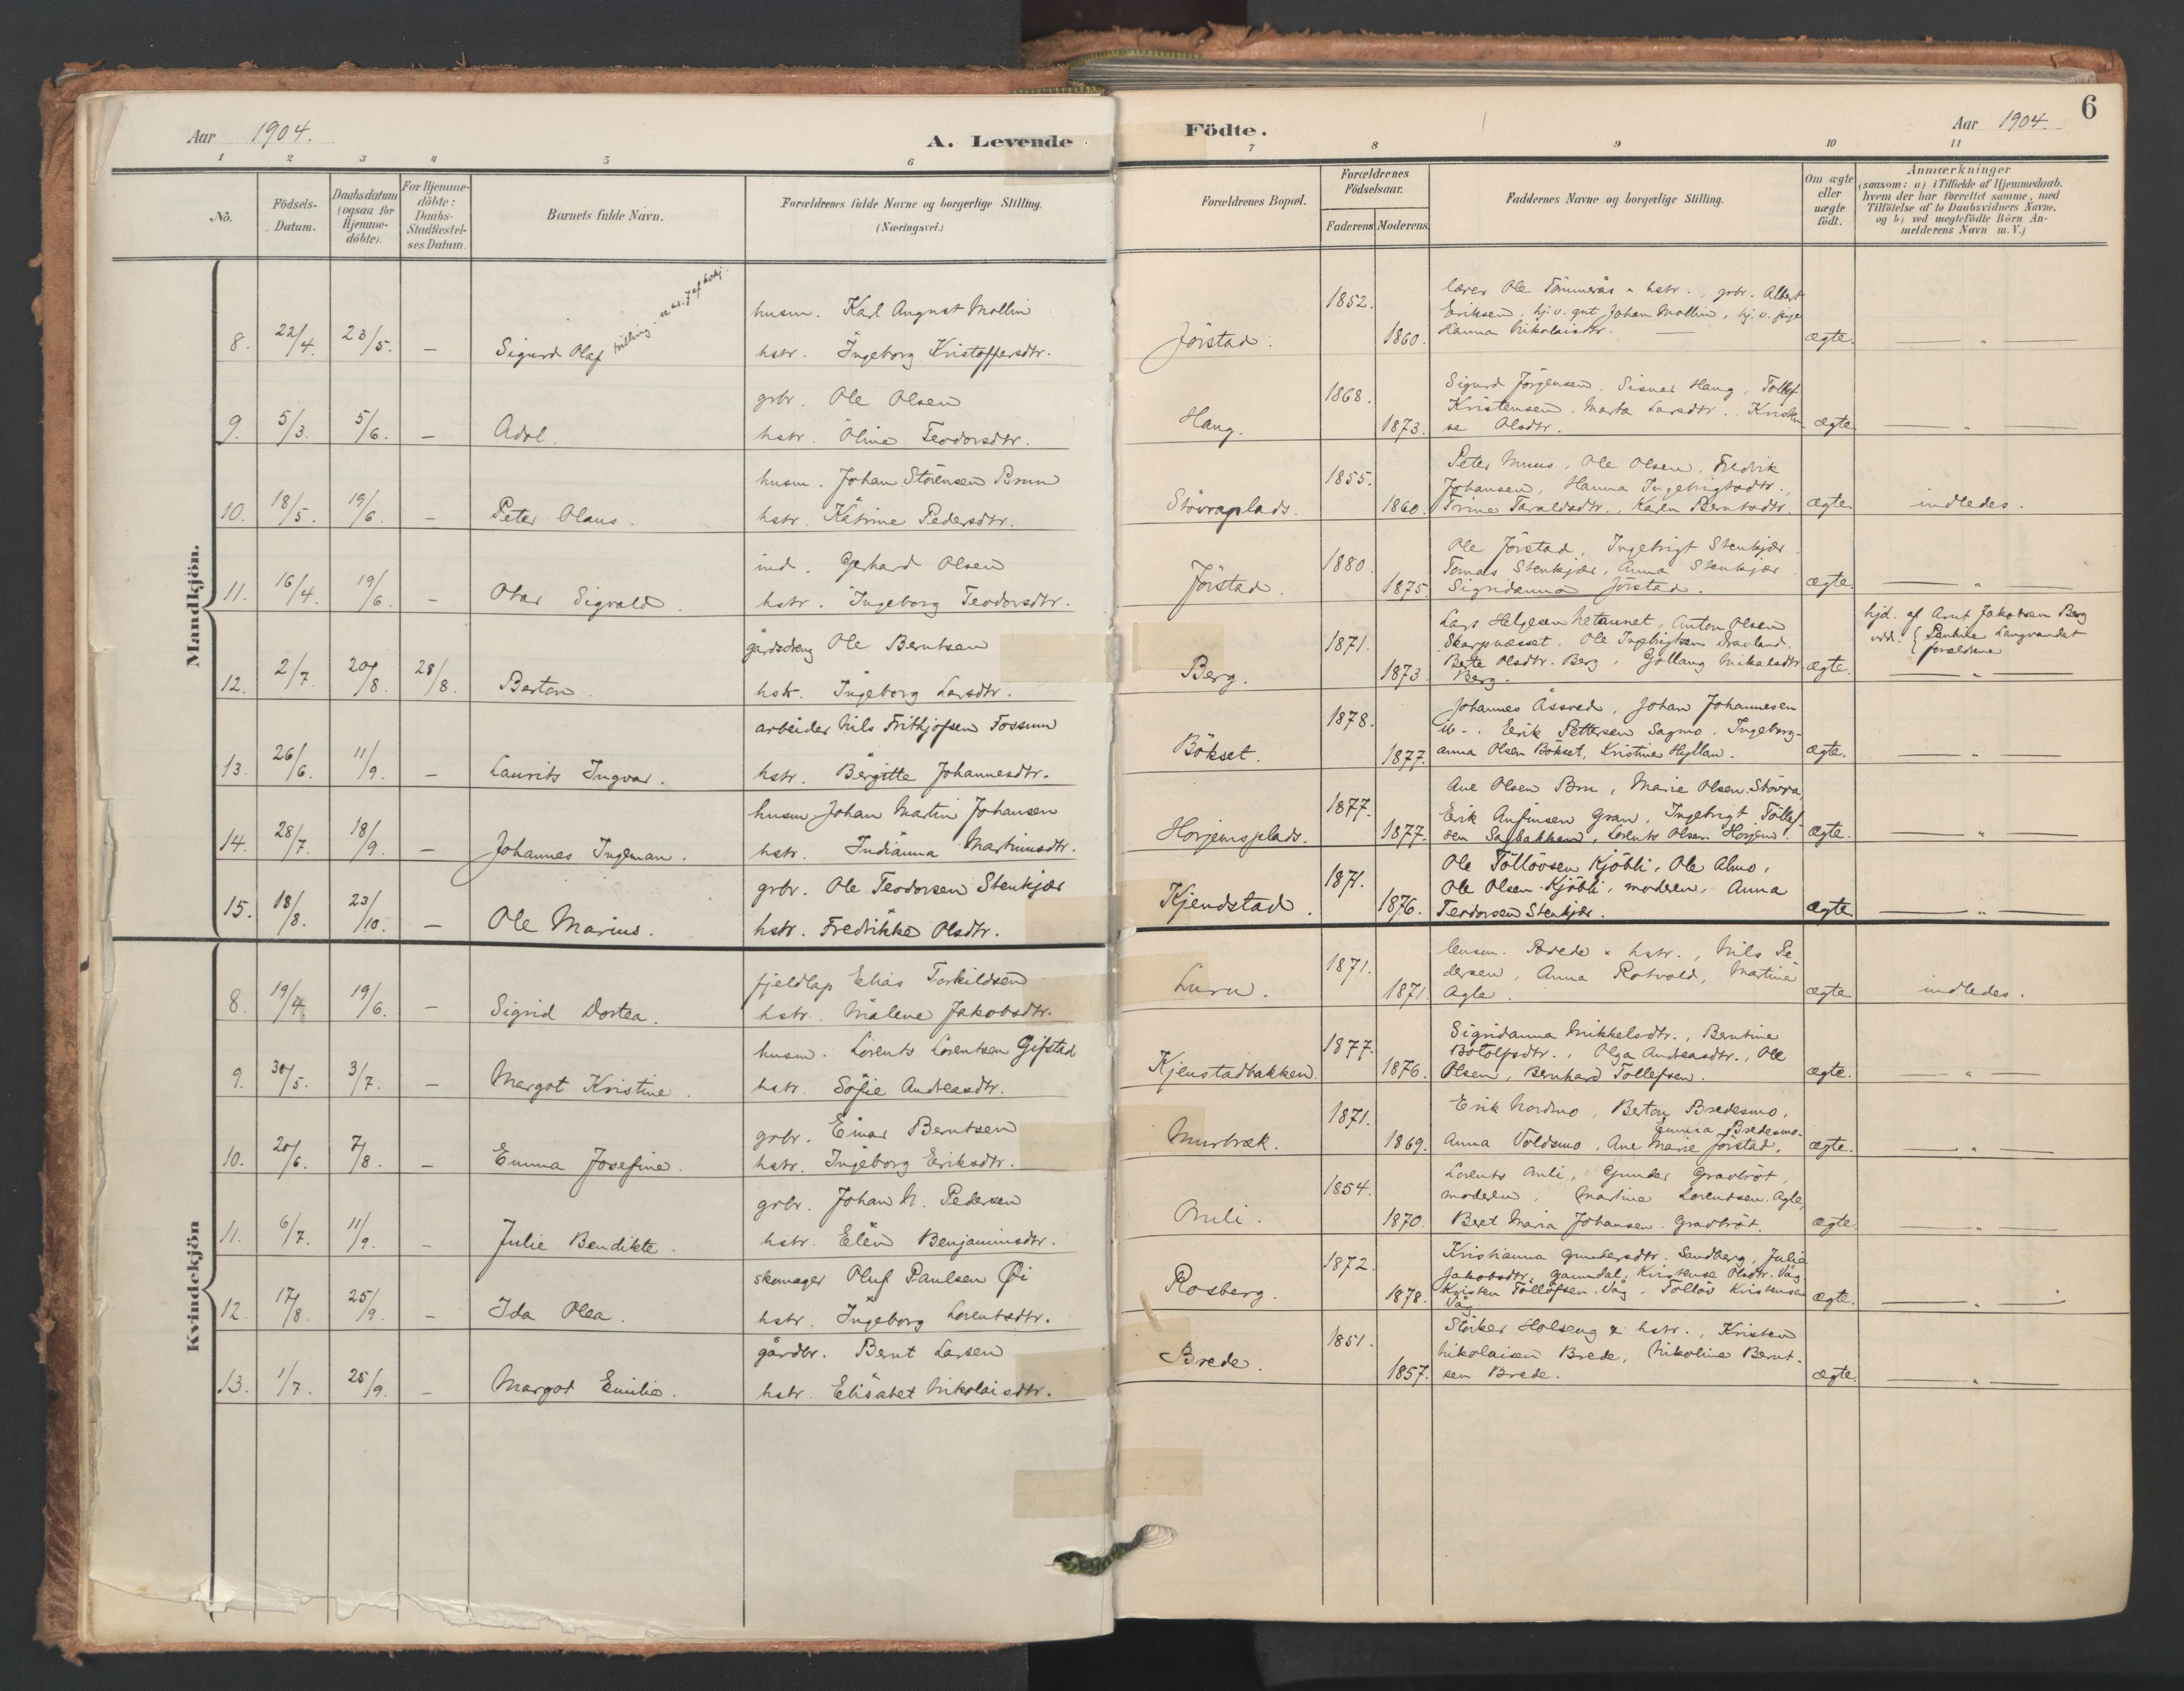 Aar 1904.
A. Levende
Födte.
Aar 1904.
6
1 2 3 4 5 6 7 8 9 10 11
Nö.
Födsels-Datum.
Daabsdatum (ogsaa for Hjemme-döbte).
For Hjemme-döbte: Daabs-Stadfæstel-ses Datum.
Barnets fulde Navn.
Forældrenes fulde Navne og borgerlige Stilling.
(Næringsvei.)
Forældrenes Bopæl.
Forældrenes Födselsaar.
Faderens Moderens
Faddernes Navne og borgerlige Stilling.
Om ægte eller uægte födt.
Anmærkninger
(saasom: a) i Tilfælde af Hjemmedaab.
hvem der har forrettet samme, med
Tilföielse af to Daabsvidners Navne.
og b) ved uægtefödte Börn An-
melderens Navn m.V.)
Mandkjön.
8. 22/4. 23/5. – Sigurd Olaf tvilling
husm. Karl August Mollin
hstr. Ingeborg Kristoffersdtr.
Jörstad. 1852. 1860.
lærer Ole Tömmerås & hstr., grbr. Albert
Eriksen, hj. v. gut Johan Mollin, hj. v. pige
Hanna Nikolaisdtr. —
ægte. — " —
9. 5/3. 5/6. – Adol.
grbr. Ole Olsen
hstr. Oline Teodorsdtr.
Haug. 1868. 1873.
Sigurd Jörgensen, Haug, Tollef
Kristensen, Marta Larsdtr.,
se Olsdtr.
ægte — " —
10. 18/5. 19/6. – Peter Olaus.
husm. Johan Störensen Brun
hstr. Katrine Pedersdtr.
Stövraplads. 1855. 1860.
Peter Muus, Ole Olsen, Fredrik
Johansen, Hanna Ingebrigtsdtr.,
Trine Taraldsdtr., Karen Berntsdtr.
ægte indledes.
11. 16/4. 19/6. – Otar Sigvald.
ind. Gerhard Olsen
hstr. Ingeborg Teodorsdtr.
Jörstad. 1880. 1875.
Ole Jörstad, Ingebrigt Stenkjær,
Tomas Stenkjær, Anna Stenkjær
Sigridanna Jörstad.
ægte. — " —
12. 2/7. 20/8. 28/8. Berton.
gårdsdreng Ole Berntsen
hstr. Ingeborg Larsdtr.
Berg. 1871. 1873.
Lars Helgesen, Anton Olsen
Skarpnæsset, Ole Ingebrigtsen
Berte Olsdtr. Berg, Gollaug Mikalsdtr.
Berg.
ægte.
hjd. af Arnt Jakobsen Berg
vdd. { Pauline Langvandet
forældrene
— " —
13. 26/6. 11/9. – Laurits Ingvar.
arbeider Nils Frithjofsen Fossum
hstr. Bergitte Johannesdtr.
Bökset. 1878. 1877.
Johannes Åsved, Johan Johannesen
ib., Eerik Pettersen Sagmo, Ingeborg-
anna Olsen Bökset, Kristine Hyllan.
ægte. — " —
14. 28/7. 18/9. – Johannes Ingeman.
husm. Johan Martin Johansen
hstr. Indianna Martinusdtr.
Horjemsplads. 1877. 1877.
Ane Olsen Bru, Marie Olsen Stövra,
Erik Anfinsen Gran, Ingebrigt Töllef-
sen Sagbakken, Lorents Olsen Horjem.
ægte. — " —
15. 18/8. 23/10. – Ole Marius.
grbr. Ole Teodorsen Stenkjær
hstr. Fredrikke Olsdtr.
Kjendstad. 1871. 1876.
Ole Töllövsen Kjöbli, Ole Almo,
Ole Olsen Kjöbli, moderen, Anna
Teodorsen Stenkjær.
ægte. — " —
Kvindekjön
8. 19/4. 19/6. – Sigrid Dortea.
fjeldlap Elias Torkildsen
hstr. Malene Jakobsdtr.
Luru. 1871. 1871.
lensm. Brede & hstr., Nils Pe-
dersen, Anna Rotvold, Martine
Agle.
ægte indledes.
9. 30/5. 3/7. – Margot Kristine.
husm. Lorents Lorentsen Gifstad
hstr. Sofie Andreasdtr.
Kjenstadbakken. 1877. 1876.
Sigridanna Mikkelsdtr., Berntine
Botolfsdtr., Olga Andreasdtr., Ole
Olsen, Bernhard Tollefsen.
ægte. — " —
10. 20/6. 7/8. – Emma Josefine.
grbr. Einar Berntsen
hstr. Ingeborg Eriksdtr.
Murbræk. 1871. 1869.
Erik Nordmo, Berton Bredesmo,
Gunnia Bredesmo.
Anna Voldsmo, Ane Marie Jörstad.
ægte. — " —
11. 6/7. 11/9. – Julie Bendikte.
grbr. Johan N. Pedersen
hstr. Elen Benjaminsdtr.
Muli. 1854. 1870.
Lorents Muli, Gunder Gravbröt,
moderen, Martine Lorentsen Agle,
Beret Maria Johansen Gravbröt.
ægte. — " —
12. 17/8. 25/9. – Ida Olea.
skomager Oluf Paulsen Öi
hstr. Ingeborg Lorentsdtr.
Rosberg. 1872. 1878.
Kristianna Gundersdtr. Sandberg, Julie
Jakobsdtr. Gaundal, Kristense Olsdtr. Våg
Kristen Töllöfsen Våg, Töllöv Kristensen
Våg.
ægte. — " —
13. 1/7. 25/9. – Margot Emilie.
gårdbr. Bernt Larsen
hstr. Elisabet Nikolaisdtr.
Brede. 1851. 1857.
Störker Holseng & hstr., Kristen
Nikolaisen Brede, Nikoline Bernt-
sen Brede.
ægte. — " —